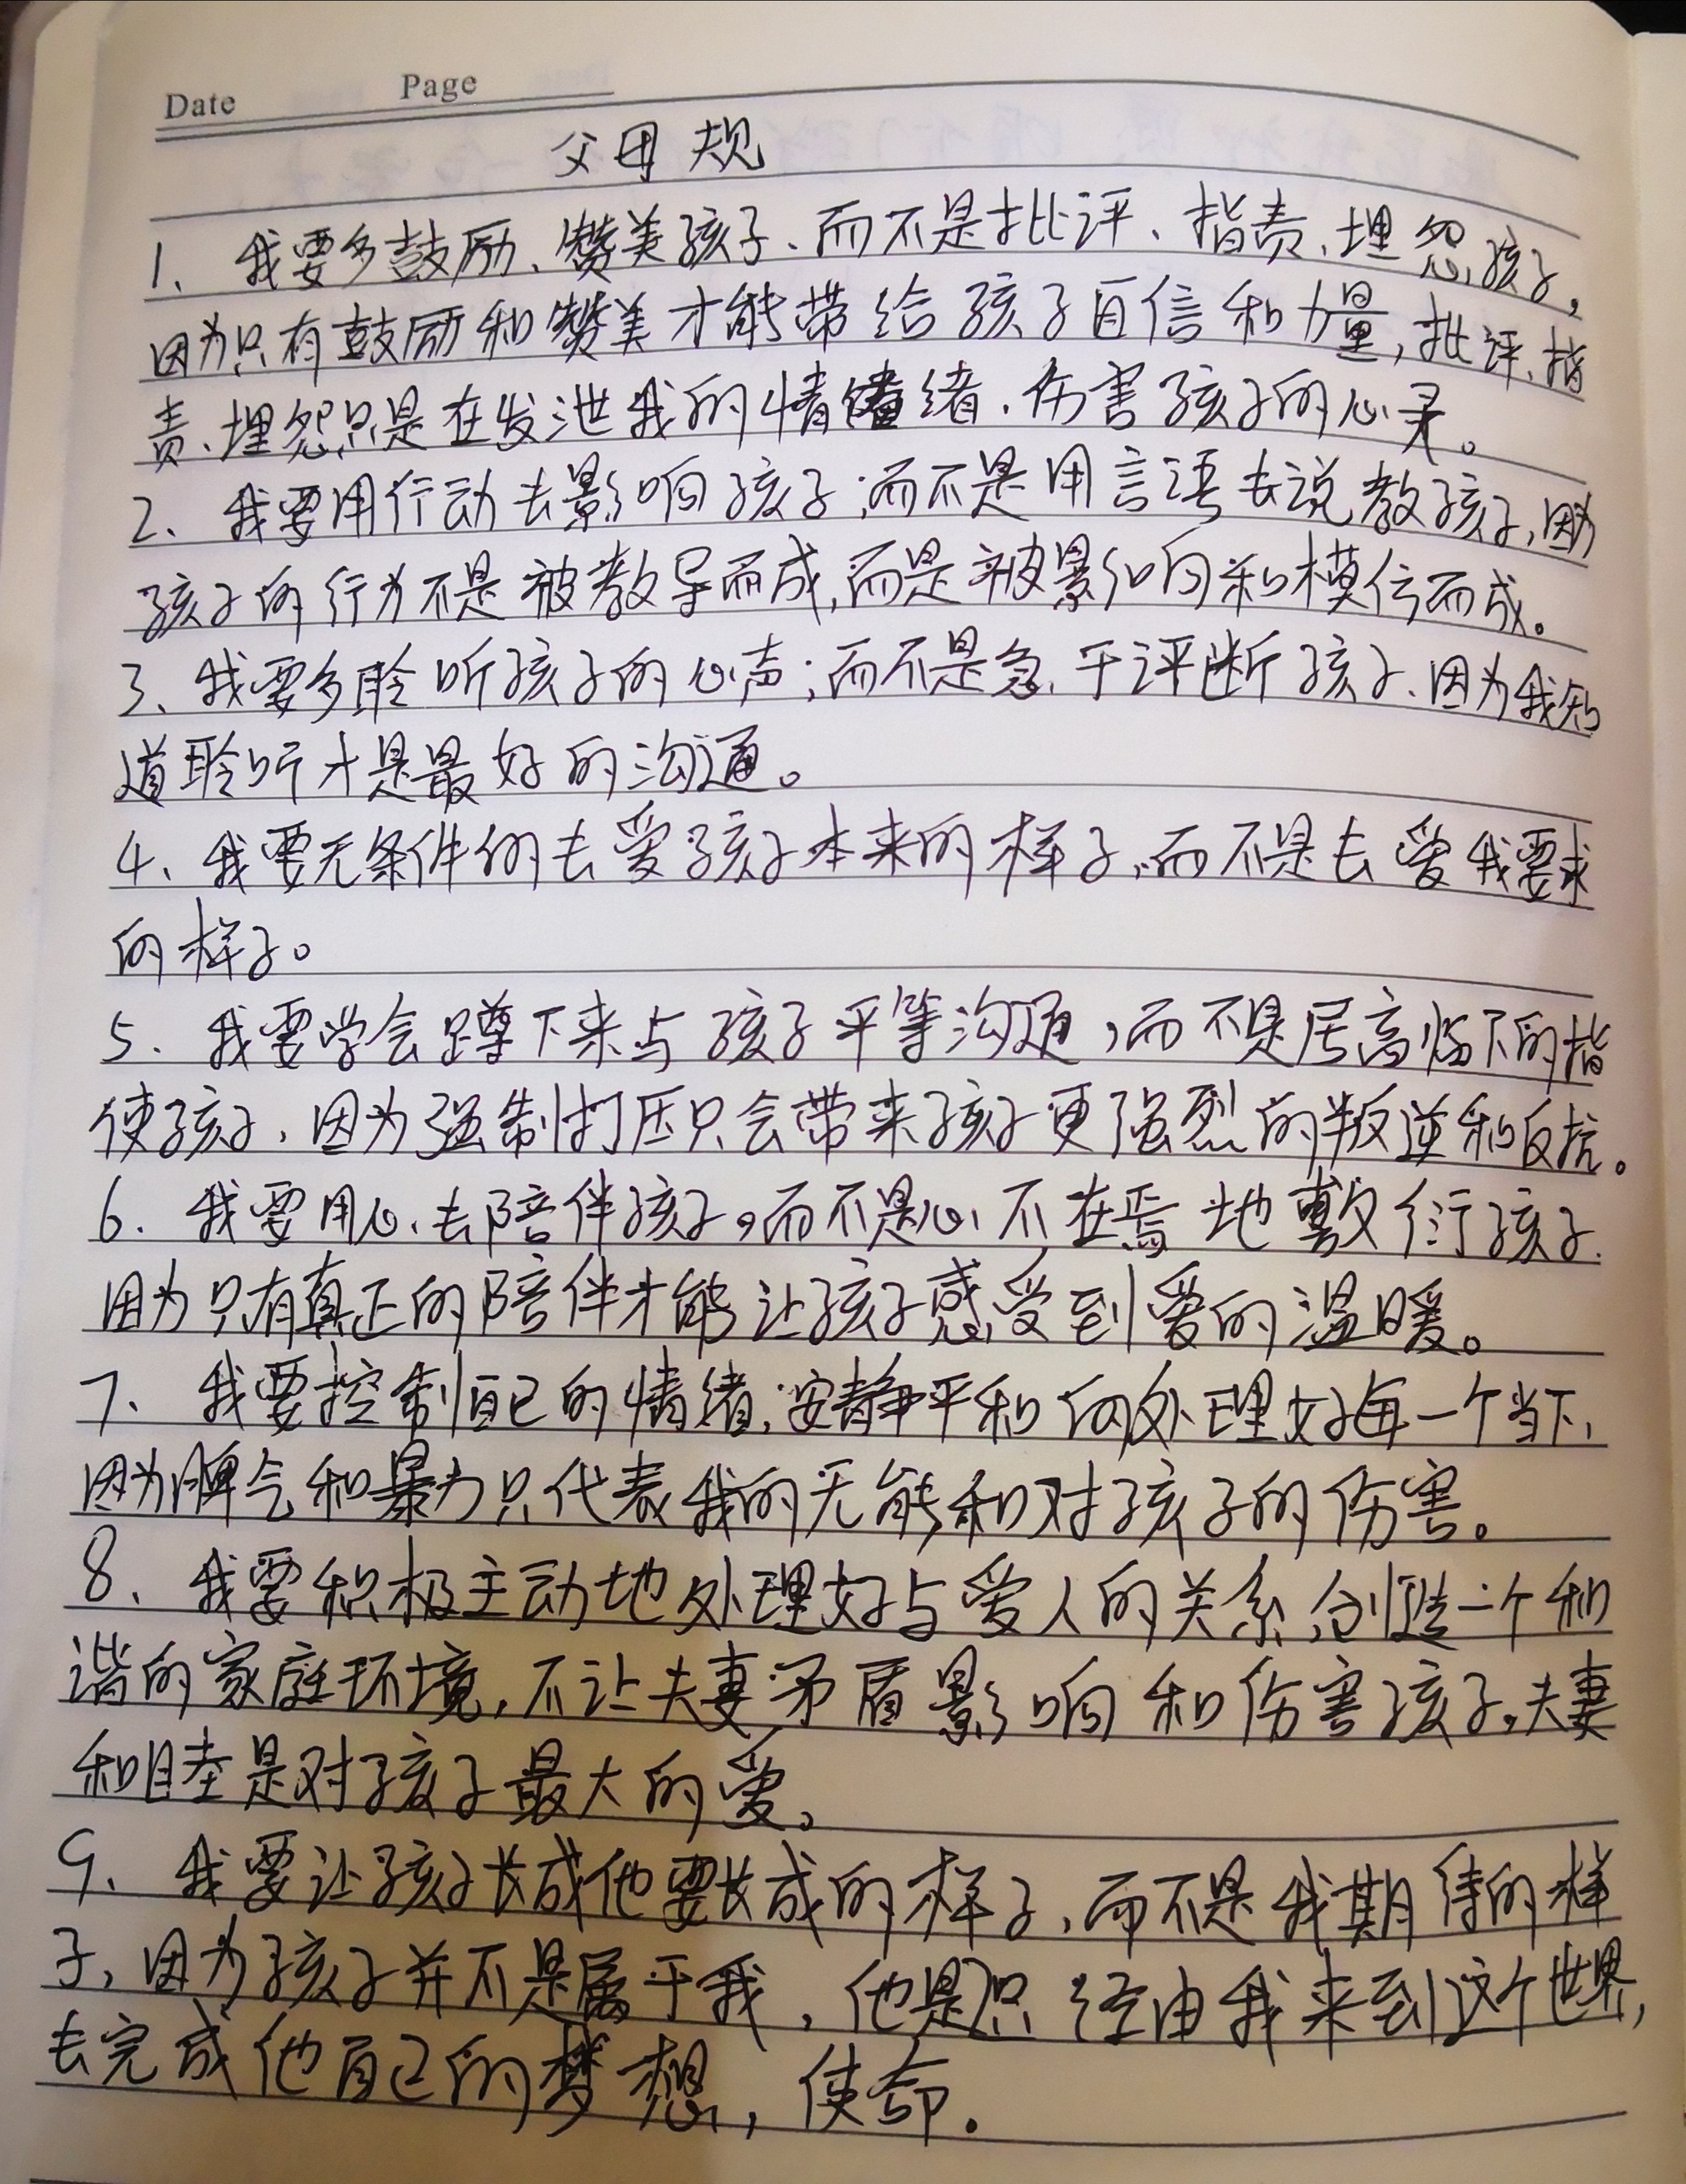 Date Page
父母规
1、我要多鼓励、赞美孩子、而不是批评、指责、埋怨孩子，
因为只有鼓励和赞美才能带给孩子自信和力量，批评、指
责、埋怨只是在发泄我的情绪、伤害孩子的心灵。
2、我要用行动去影响孩子；而不是用言语去说教孩子，因为
孩子的行为不是被教导而成，而是被影响和模仿而成。
3、我要多聆听孩子的心声；而不是急于评断孩子、因为我知
道聆听才是最好的沟通。
4、我要无条件的去爱孩子本来的样子，而不是去爱我要求
的样子。
5、我要学会蹲下来与孩子平等沟通，而不是居高临下的指
使孩子，因为强制打压只会带来孩子更强烈的叛逆和反抗。
6、我要用心去陪伴孩子。而不是心不在焉地敷衍孩子.
因为只有真正的陪伴才能让孩子感受到爱的温暖。
7、我要控制自己的情绪，安静平和的处理好每一个当下、
因为脾气和暴力只代表我的无能和对孩子的伤害。
8、我要积极主动地处理好与爱人的关系，创造一个和
谐的家庭环境，不让夫妻矛盾影响和伤害孩子。夫妻
和睦是对孩子最大的爱。
9、我要让孩子长成他要长成的样子，而不是我期待的样
子，因为孩子并不是属于我，他是只经由我来到这个世界，
去完成他自己的梦想，使命.